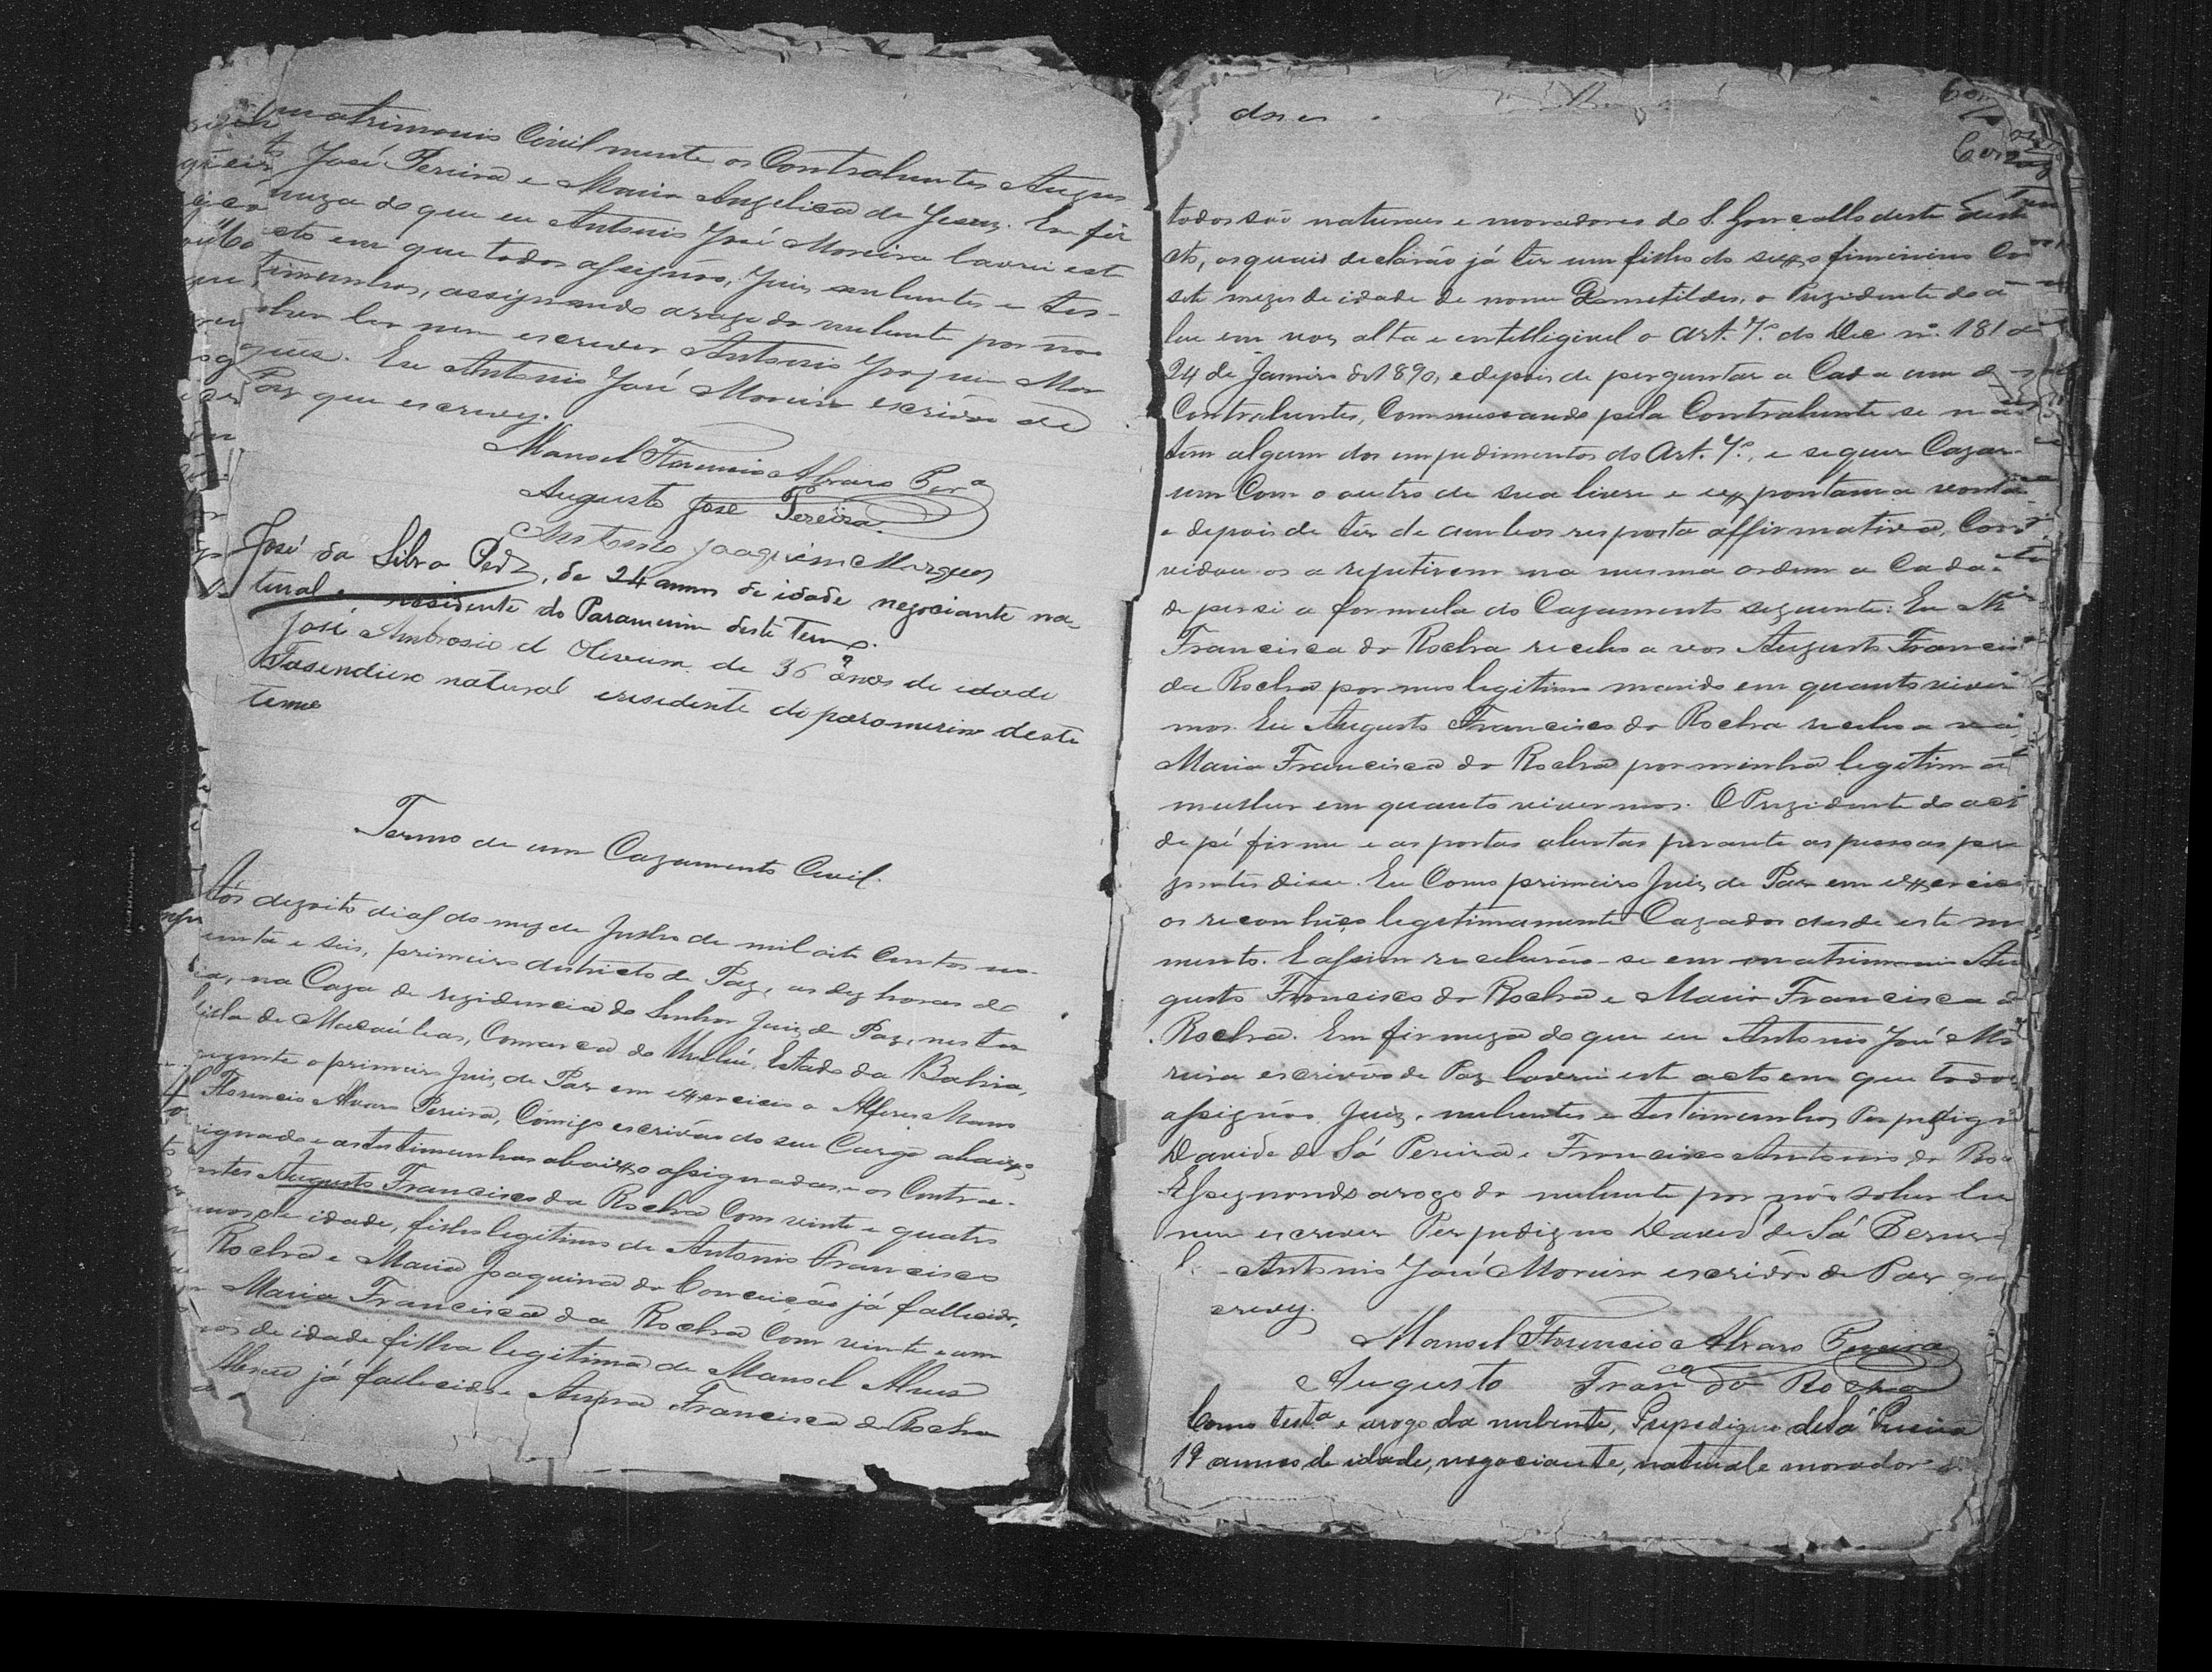 matrimonio Civilmente os Contrahentes Augus
to José Pereira e Maria Angelica de Jesus. Em fir
meza do que eu Antonio José Moreira lavrei este
acto em que todos assignão, Juiz, nubentes e tes-
timunhas, assignando arogo da nubente por não
saber ler nem escrever Antonio Joaquim Mar
ques. Eu Antonio José Moreira escrivão de
Paz que escrevy.
Manoel Florencio Alvaro Per.ª
Augusto José Pereira
Antonio Joaquim Marques
José da Silva, de 24 annos de idade negociante na-
tural e residente do Paramirim deste Termo.
José Ambrosio d Oliveira de 36 anos de idade
Fasendiero natural eresedente do paramerim deste
termo
Termo de um Cazamento Civil.
Aos dezoito dias do mez de Julho de mil oito Centos no-
venta e seis, primeiro districto de Paz, as dez horas do
dia, na Caza de rezidencia do Senhor Juiz de Paz, nesta
Villa de Macaúbas, Comarca do Urubú, Estado da Bahia,
prezente o primeiro Juiz de Paz em exxercicio o Alferes Mano
el Florencio Alvaro Pereira, Cómigo escrivão do seu Cargo abaixo
assignado e as testimunhas abaixxo assignadas, e os Contrae-
ntes Augusto Francisco da Rocha Com vinte e quatro
annos de idade, filho legitimo de Antonio Francisco
Rocha e Maria Joaquina da Conceição já fallecida,
Maria Francisca da Rocha Com vinte e um
annos de idade filha legitima de Manoel Alves
Abreu já fallecido e Francisca da Rocha
60
todos são naturaes e moradores do S. Gonçallo deste destri
cto, os quais declarão já ter um filho do sexxo fiminino Com
sete mezes de idade de nome Dometildes, o Prezidente do a
leu em voz alta e entelligivel o Art. 7.º do Dec n.º 181 de
24 de Janeiro de 1890, e depois de perguntar a Cada um d
Contrahentes, Commessando pela Contrahente se não
tem algum dos empedimentos do Art. 7.º, e se quer Cazar-
um Com o outro de sua livre e exxpontania vonta
e depois de ter de ambos resposta affirmativa, Con
vidou os a repetirem na mesma ordem a Cada
de per si a formula do Cazamento seguinte: Eu M
Francisca da Rocha recebo a vos Augusto Francis
da Rocha por meu legitimo marido em quanto viver
mos. Eu Augusto Francisco da Rocha recebo a vos
Maria Francisca da Rocha por minha legitima
mulher em quanto vivermos. O Prezidente do act
de pé firme e as portas abertas perante as pessoas pre
zentes disse. Eu Como primeiro Juiz de Paz em exxercicio
os reconheço legetimamente Cazados desde este mo
mento. E assim receberão-se em matrimonio Au
gusto Francisco da Rocha e Maria Francisca d
Rocha. Em firmeza do que eu Antonio José Mo
reira escrivão de Paz lavrei este acto em que todos
assignão Juiz, nubentes e testimunhas Perpedigno
Davide de Sá Pereira e Francisco Antonio da Roc
Assignando arogo da nubente por não saber ler
nem escrever Perpedigno David de Sá Pereir
Antonio José Moreira escrivão de Paz que
crevy.
Manoel Florencio Alvaro Pereira
Augusto Fran.co da Rocha
Como test.ª e arogo da nubente, Prepedigno de Sá Pereira
19 annos de idade, negociante, natural e morador